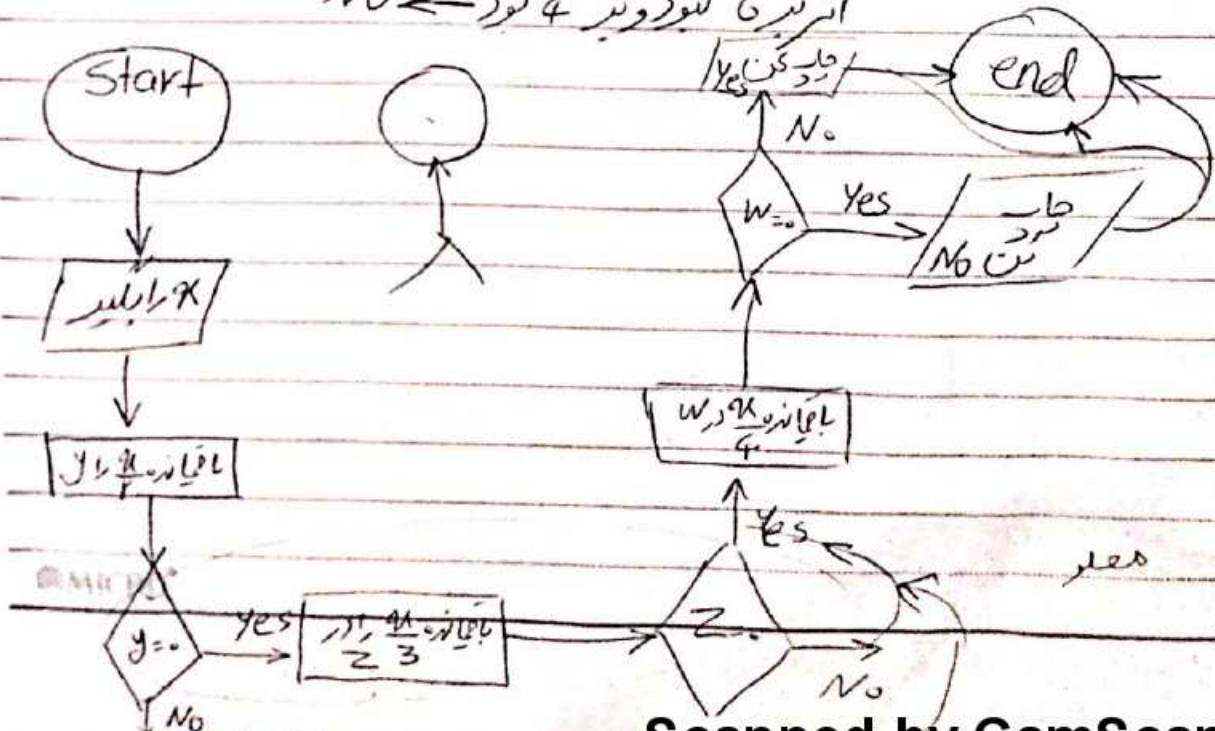 اگر بر نبود و بر 4 بود ←
Start
x را بگیر
باقیمانده x/2 را y
y=0
Yes
No
باقیمانده x/3 را در Z
Z=0
Yes
No
باقیمانده x/4 در W
W=0
No
Yes
چاپ کن Yes
چاپ کن No
end
Scanned by CamScan